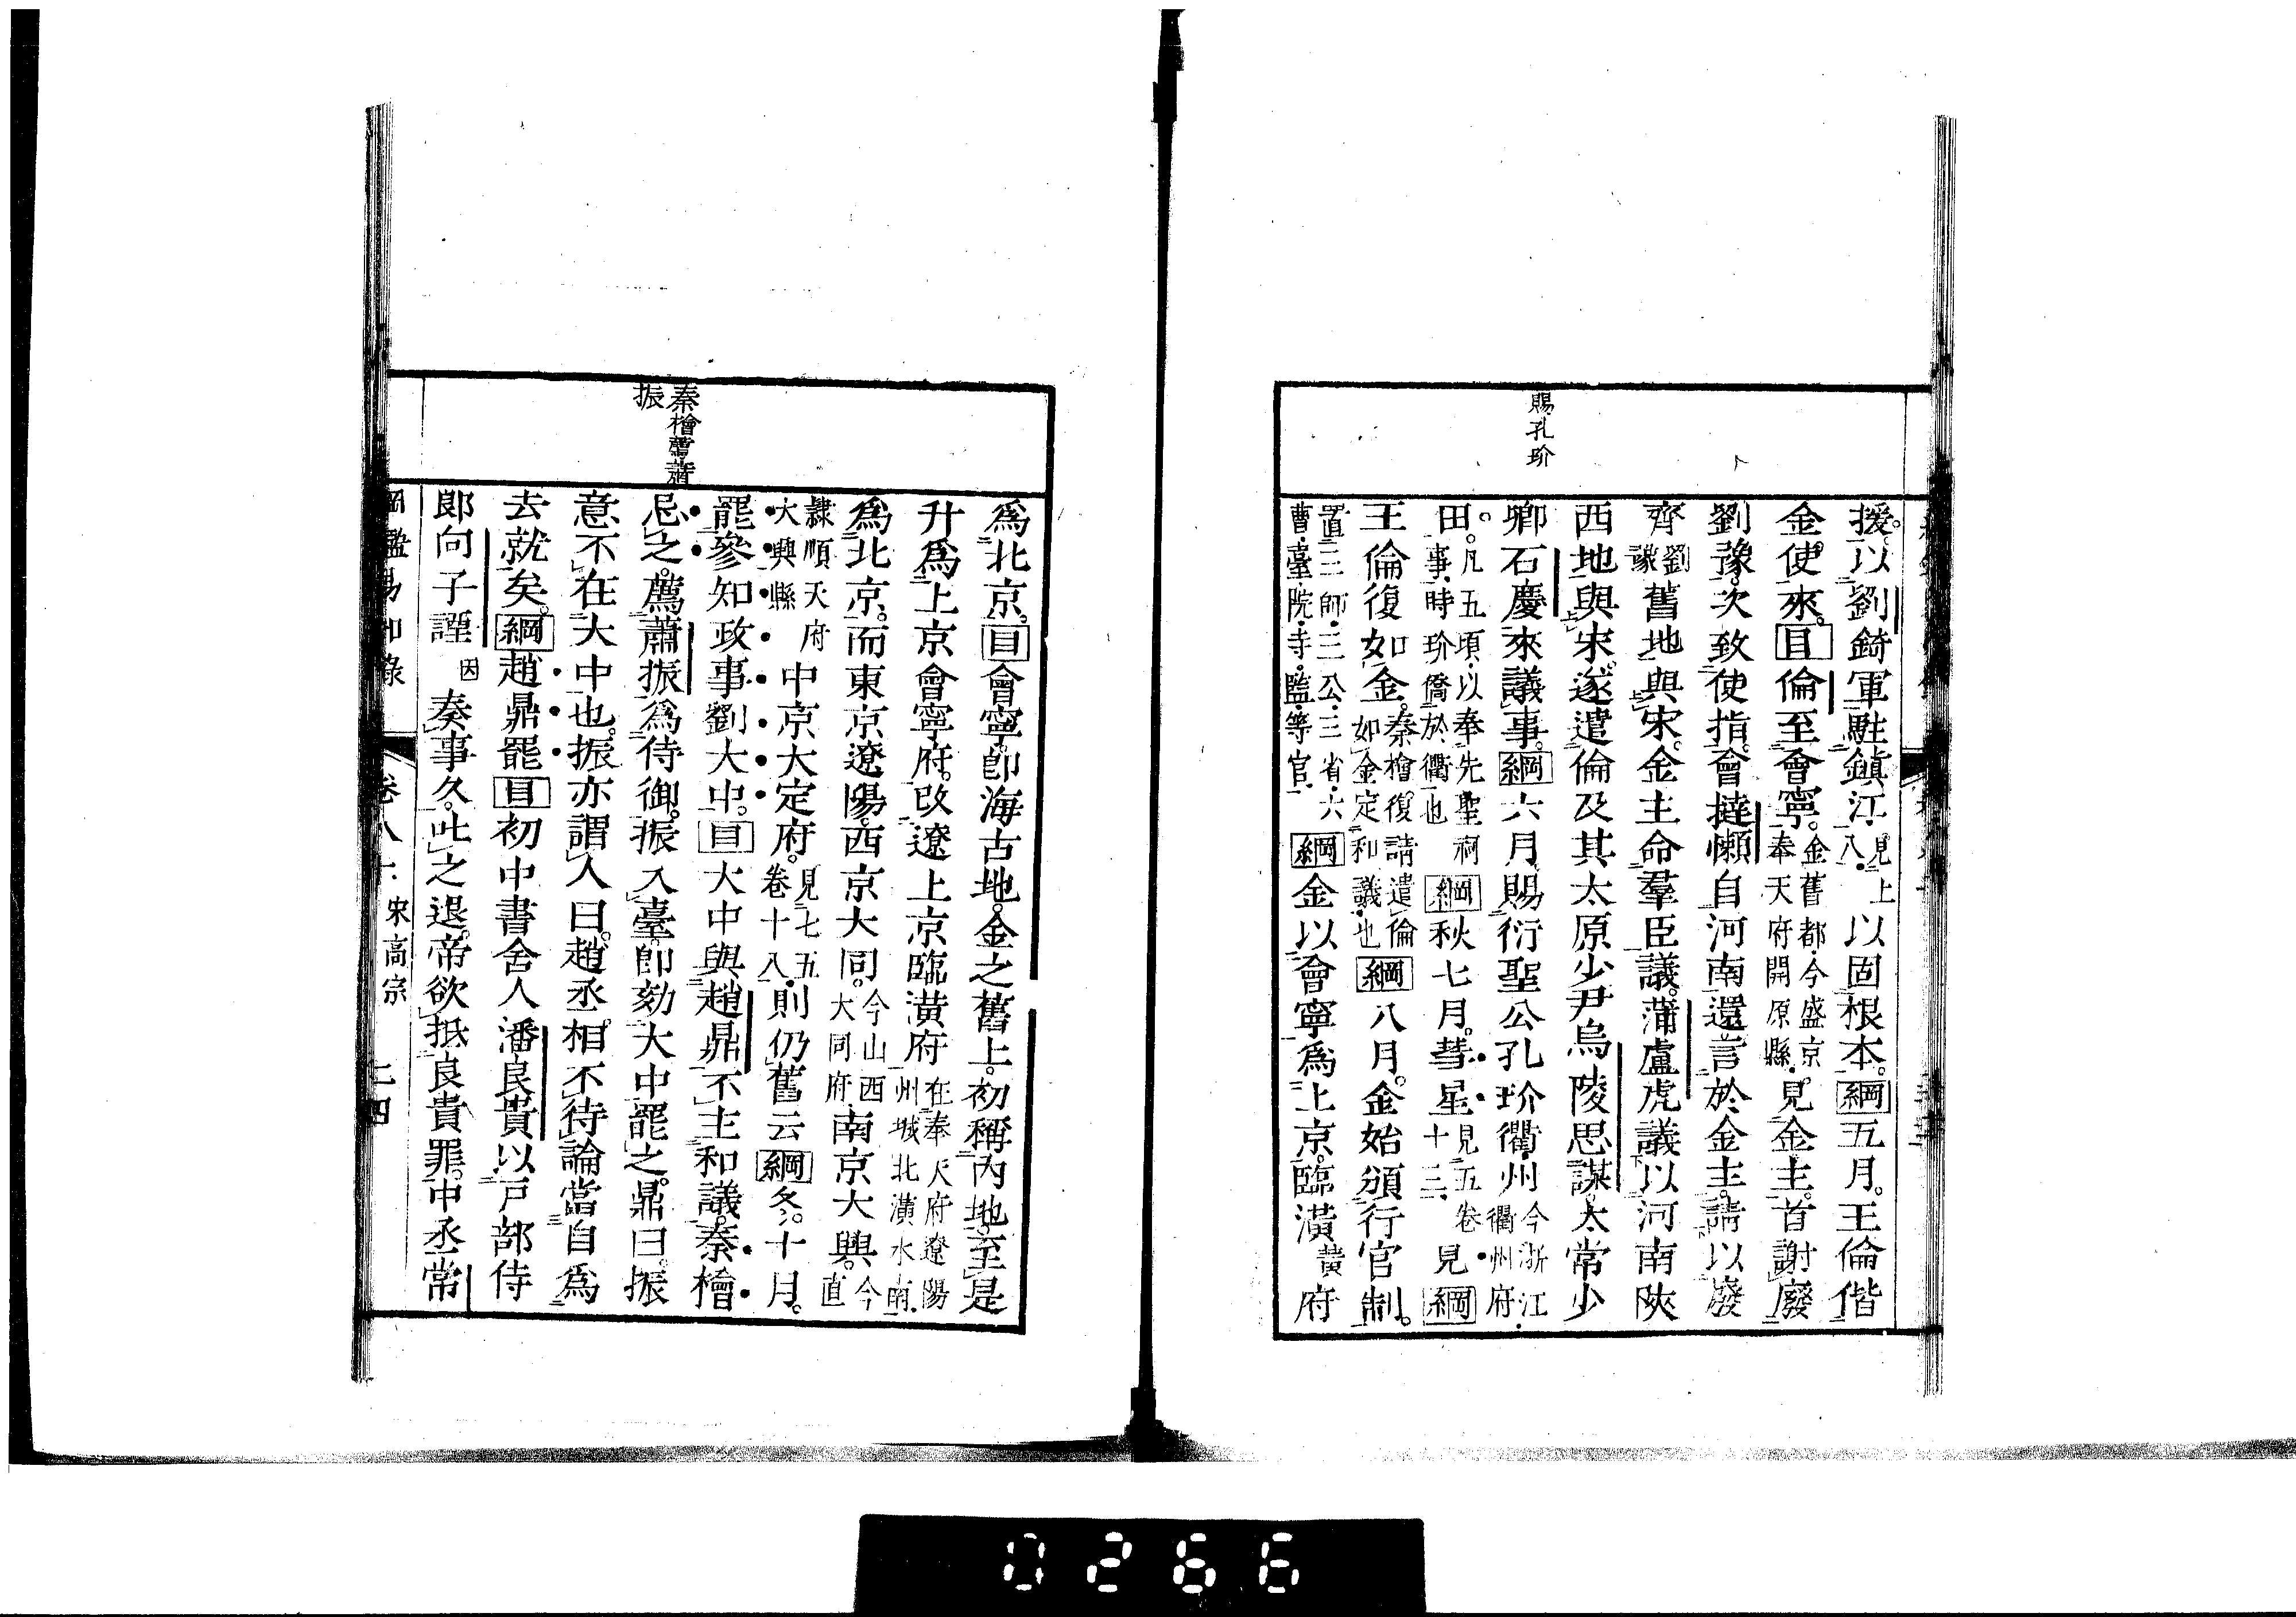 賜孔玠
援。以劉錡軍駐鎭江、見上八。以固根本。綱五月。王倫偕
金使來。目倫至會寧。金舊都。今盛京奉天府開原縣。見金主。首謝廢
劉豫。次致使指。會撻懶自河南還。言於金主。請以廢
齊劉豫舊地與宋。金主命羣臣議。蒲盧虎議以河南陝
西地與宋。遂遣倫及其太原少尹烏陵思謀。太常少
卿石慶來議事。綱六月。賜衍聖公孔玠衢州今浙江衢州府。
田。凡五頃。以奉先聖祠事。時玠僑於衢也綱秋七月。彗星見五卷十二。見綱
王倫復如金。秦檜。復請遣倫如金定和議也綱八月。金始頒行官制。
置三師。三公。三省。六曹。臺院。寺。監。等官綱金以會寧爲上京。臨潢黃府
秦檜薦蕭振
爲北京。目會寧。卽海古地。金之舊土。初稱內地。至是
升爲上京會寧府。改遼上京臨潢府在奉天府遼陽州城北潢水南。
爲北京。而東京遼陽。西京大同。今山西大同府南京大興。今直
隸順天府大興縣中京大定府。見七五卷十八。則仍舊云綱冬。十月。
罷參知政事劉大中。目大中與趙鼎不主和議。秦檜
忌之。薦蕭振爲侍御。振入臺。卽劾大中罷之。鼎曰。振
意不在大中也。振亦謂人曰。趙丞相不待論。當自爲
去就矣。綱趙鼎罷目初中書舍人潘良貴以戸部侍
郞向子諲因奏事久。叱之退。帝欲抵良貴罪。中丞常
綱鑑易知錄 卷八十 宋高宗 四
0266